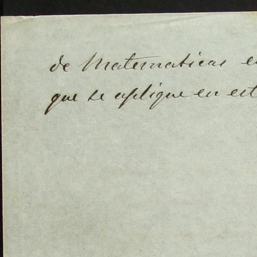 de Matematicas e
que se aplique en est